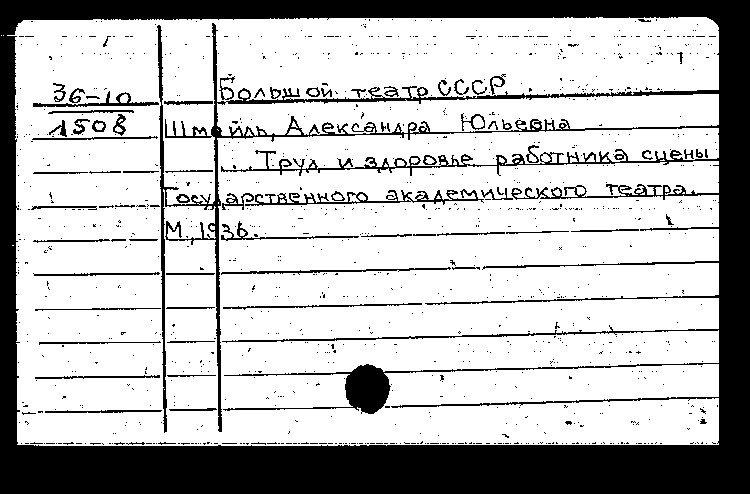 36-10 Большой театр СССР.
1508 Шмайль, Александра Юльевна
... Труд и здоровье работника сцены
Государственного академического театра.
М., 1936.